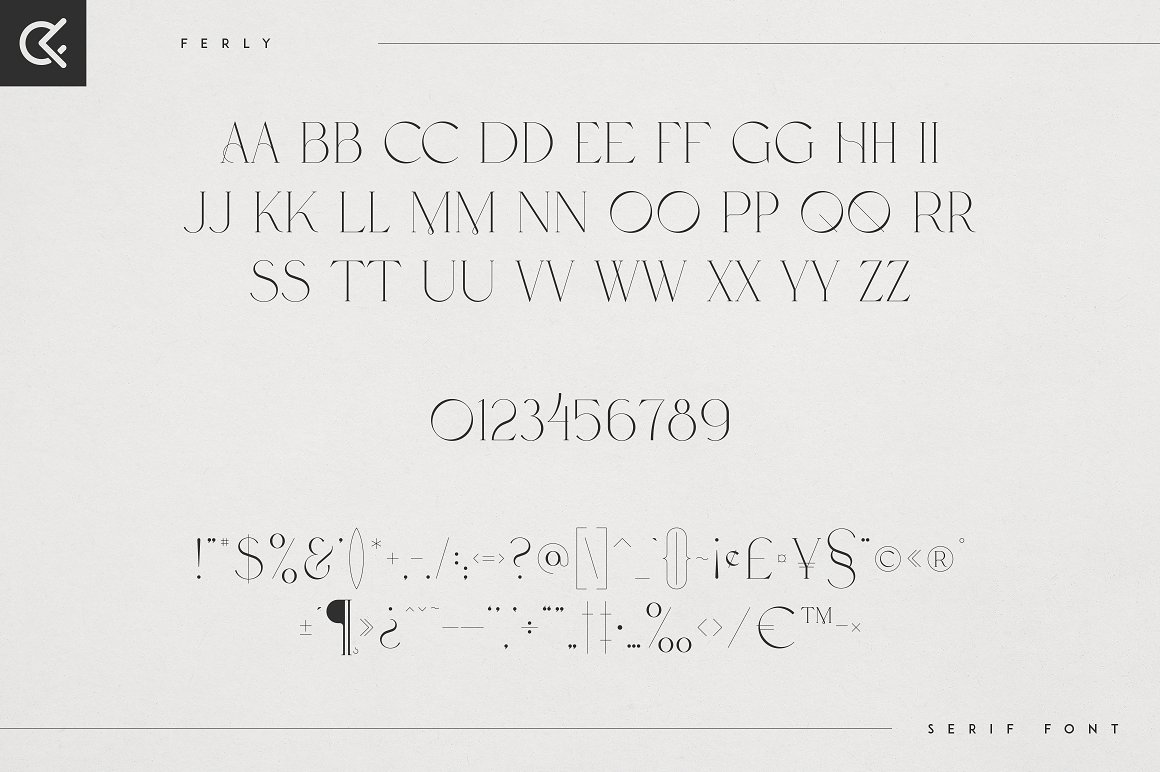 FERLY
AA BB CC DD EE FF GG HH II
JJ KK LL MM NN OO PP QQ RR
SS TT UU VV WW XX YY ZZ
0123456789
!"#$%&'()*+,-./:;<=>?@[\]^_`{|}~¡¢£¤¥§¨©«®°
±´¶¸»¿ˆˇ˜–—‘’‚÷“”„†‡•…‰‹›⁄€™−×
SERIF FONT